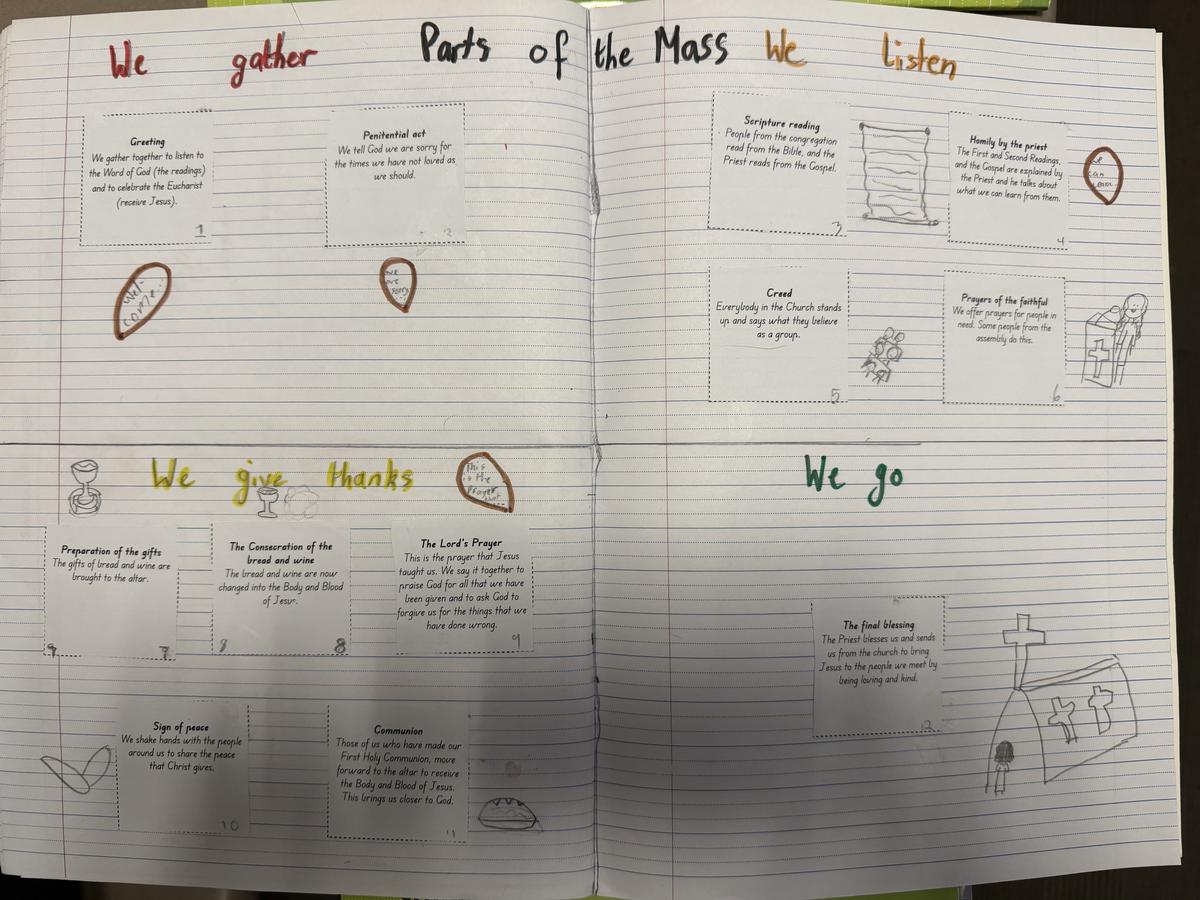 Parts of the Mass
We gather
Greeting
We gather together to listen to
the Word of God (the readings)
and to celebrate the Eucharist
(receive Jesus).
1
Penitential act
We tell God we are sorry for
the times we have not loved as
we should.
2
Wel-
come...
we
are
sorry
We listen
Scripture reading
People from the congregation
read from the Bible, and the
Priest reads from the Gospel.
3
Homily by the priest
The First and Second Readings,
and the Gospel are explained by
the Priest and he talks about
what we can learn from them.
4
can
Creed
Everybody in the Church stands
up and says what they believe
as a group.
5
Prayers of the faithful
We offer prayers for people in
need. Some people from the
assembly do this.
6
We give thanks
This
is the
Prayer
that
Preparation of the gifts
The gifts of bread and wine are
brought to the altar.
7
The Consecration of the
bread and wine
The bread and wine are now
changed into the Body and Blood
of Jesus.
8
The Lord's Prayer
This is the prayer that Jesus
taught us. We say it together to
praise God for all that we have
been given and to ask God to
forgive us for the things that we
have done wrong.
9
Sign of peace
We shake hands with the people
around us to share the peace
that Christ gives.
10
Communion
Those of us who have made our
First Holy Communion, move
forward to the altar to receive
the Body and Blood of Jesus.
This brings us closer to God.
11
We go
The final blessing
The Priest blesses us and sends
us from the church to bring
Jesus to the people we meet by
being loving and kind.
12